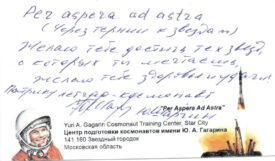 Per aspera ad astra
(Через тернии к звездам)
Желаю тебе достичь тех звезд,
о которых ты мечтаешь,
желаю тебе здоровья и удачи
космонавт
"Per Aspera Ad Astra"
Yuri A. Gagarin Cosmonaut Training Center, Star City
Центр подготовки космонавтов имени Ю. А. Гагарина
141 160 Звездный городок
Московская область